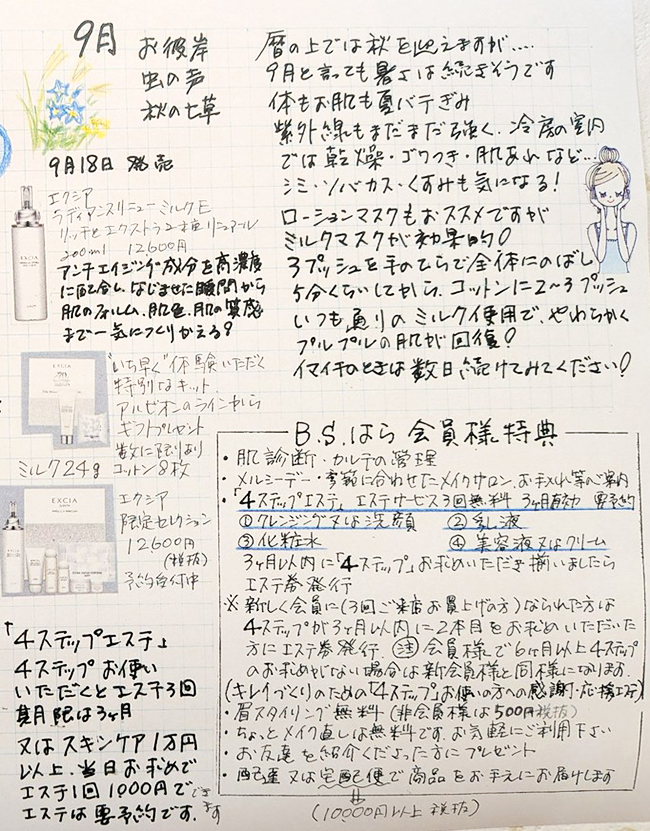 9月
お彼岸
虫の声
秋の七草
暦の上では秋を迎えますが....
9月と言っても暑さは続きそうです
体もお肌も夏バテぎみ
紫外線もまだまだ強く、冷房の室内
では乾燥・ゴワつき・肌あれなど...
シミ・ソバカス・くすみも気になる!
ローションマスクもおススメですが
ミルクマスクが効果的!
3プッシュを手のひらで全体にのばし
5分くらいしてから、コットンに2~3プッシュ
いつも通りのミルク使用で、やわらかく
プルプルの肌が回復!
イマイチのときは数日続けてみてください!
9月18日 発売
エクシア
ラディアンスリニュー ミルクE
リッチとエクストラ 2種リニューアル
200ml 12,600円
アンチエイジング成分を高濃度
に配合し、なじませた瞬間から
肌のフォルム、肌色、肌の質感
まで一気につくりかえる!
EXCIA
"いち早く"体験いただく
特別なキット
アルビオンのラインから
ギフトプレゼント
数に限りあり
ミルク24g コットン8枚
EXCIA
エクシア
限定セレクション
12,600円
(税抜)
予約受付中
EXCIA
「4ステップエステ」
4ステップお使い
いただくとエステ3回
期限は3ヶ月
又はスキンケア1万円
以上、当日お求めで
エステ1回1,000円でできます
エステは要予約です。
B.S.はら 会員様特典
・肌診断・カルテの管理
・メルシーデー・季節に合わせたメイクサロン、お手入れ等のご案内
・「4ステップエステ」エステサービス3回無料 3ヶ月有効 要予約
①クレンジング又は洗顔 ②乳液
③化粧水 ④美容液又はクリーム
3ヶ月以内に「4ステップ」お求めいただき揃いましたら
エステ券発行
※新しく会員に(3回ご来店お買上げの方)なられた方は
4ステップが3ヶ月以内に2本目をお求めいただいた
方にエステ券発行、注 会員様で6ヶ月以上4ステップ
のお求めがない場合は新会員様と同様になります.
(キレイづくりのための「4ステップ」お使いの方への感謝・応援エステ)
・眉スタイリング無料(非会員様は500円税抜)
・ちょっとメイク直しは無料です、お気軽にご利用下さい
・お友達を紹介くださった方にプレゼント
・配達又は宅配便で商品をお手元にお届けします
(10,000円以上 税抜)